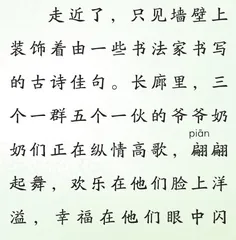 走近了，只见墙壁上
装饰着由一些书法家书写
的古诗佳句。长廊里，三
个一群五个一伙的爷爷奶
piān
奶们正在纵情高歌，翩翩
起舞，欢乐在他们脸上洋
溢，幸福在他们眼中闪